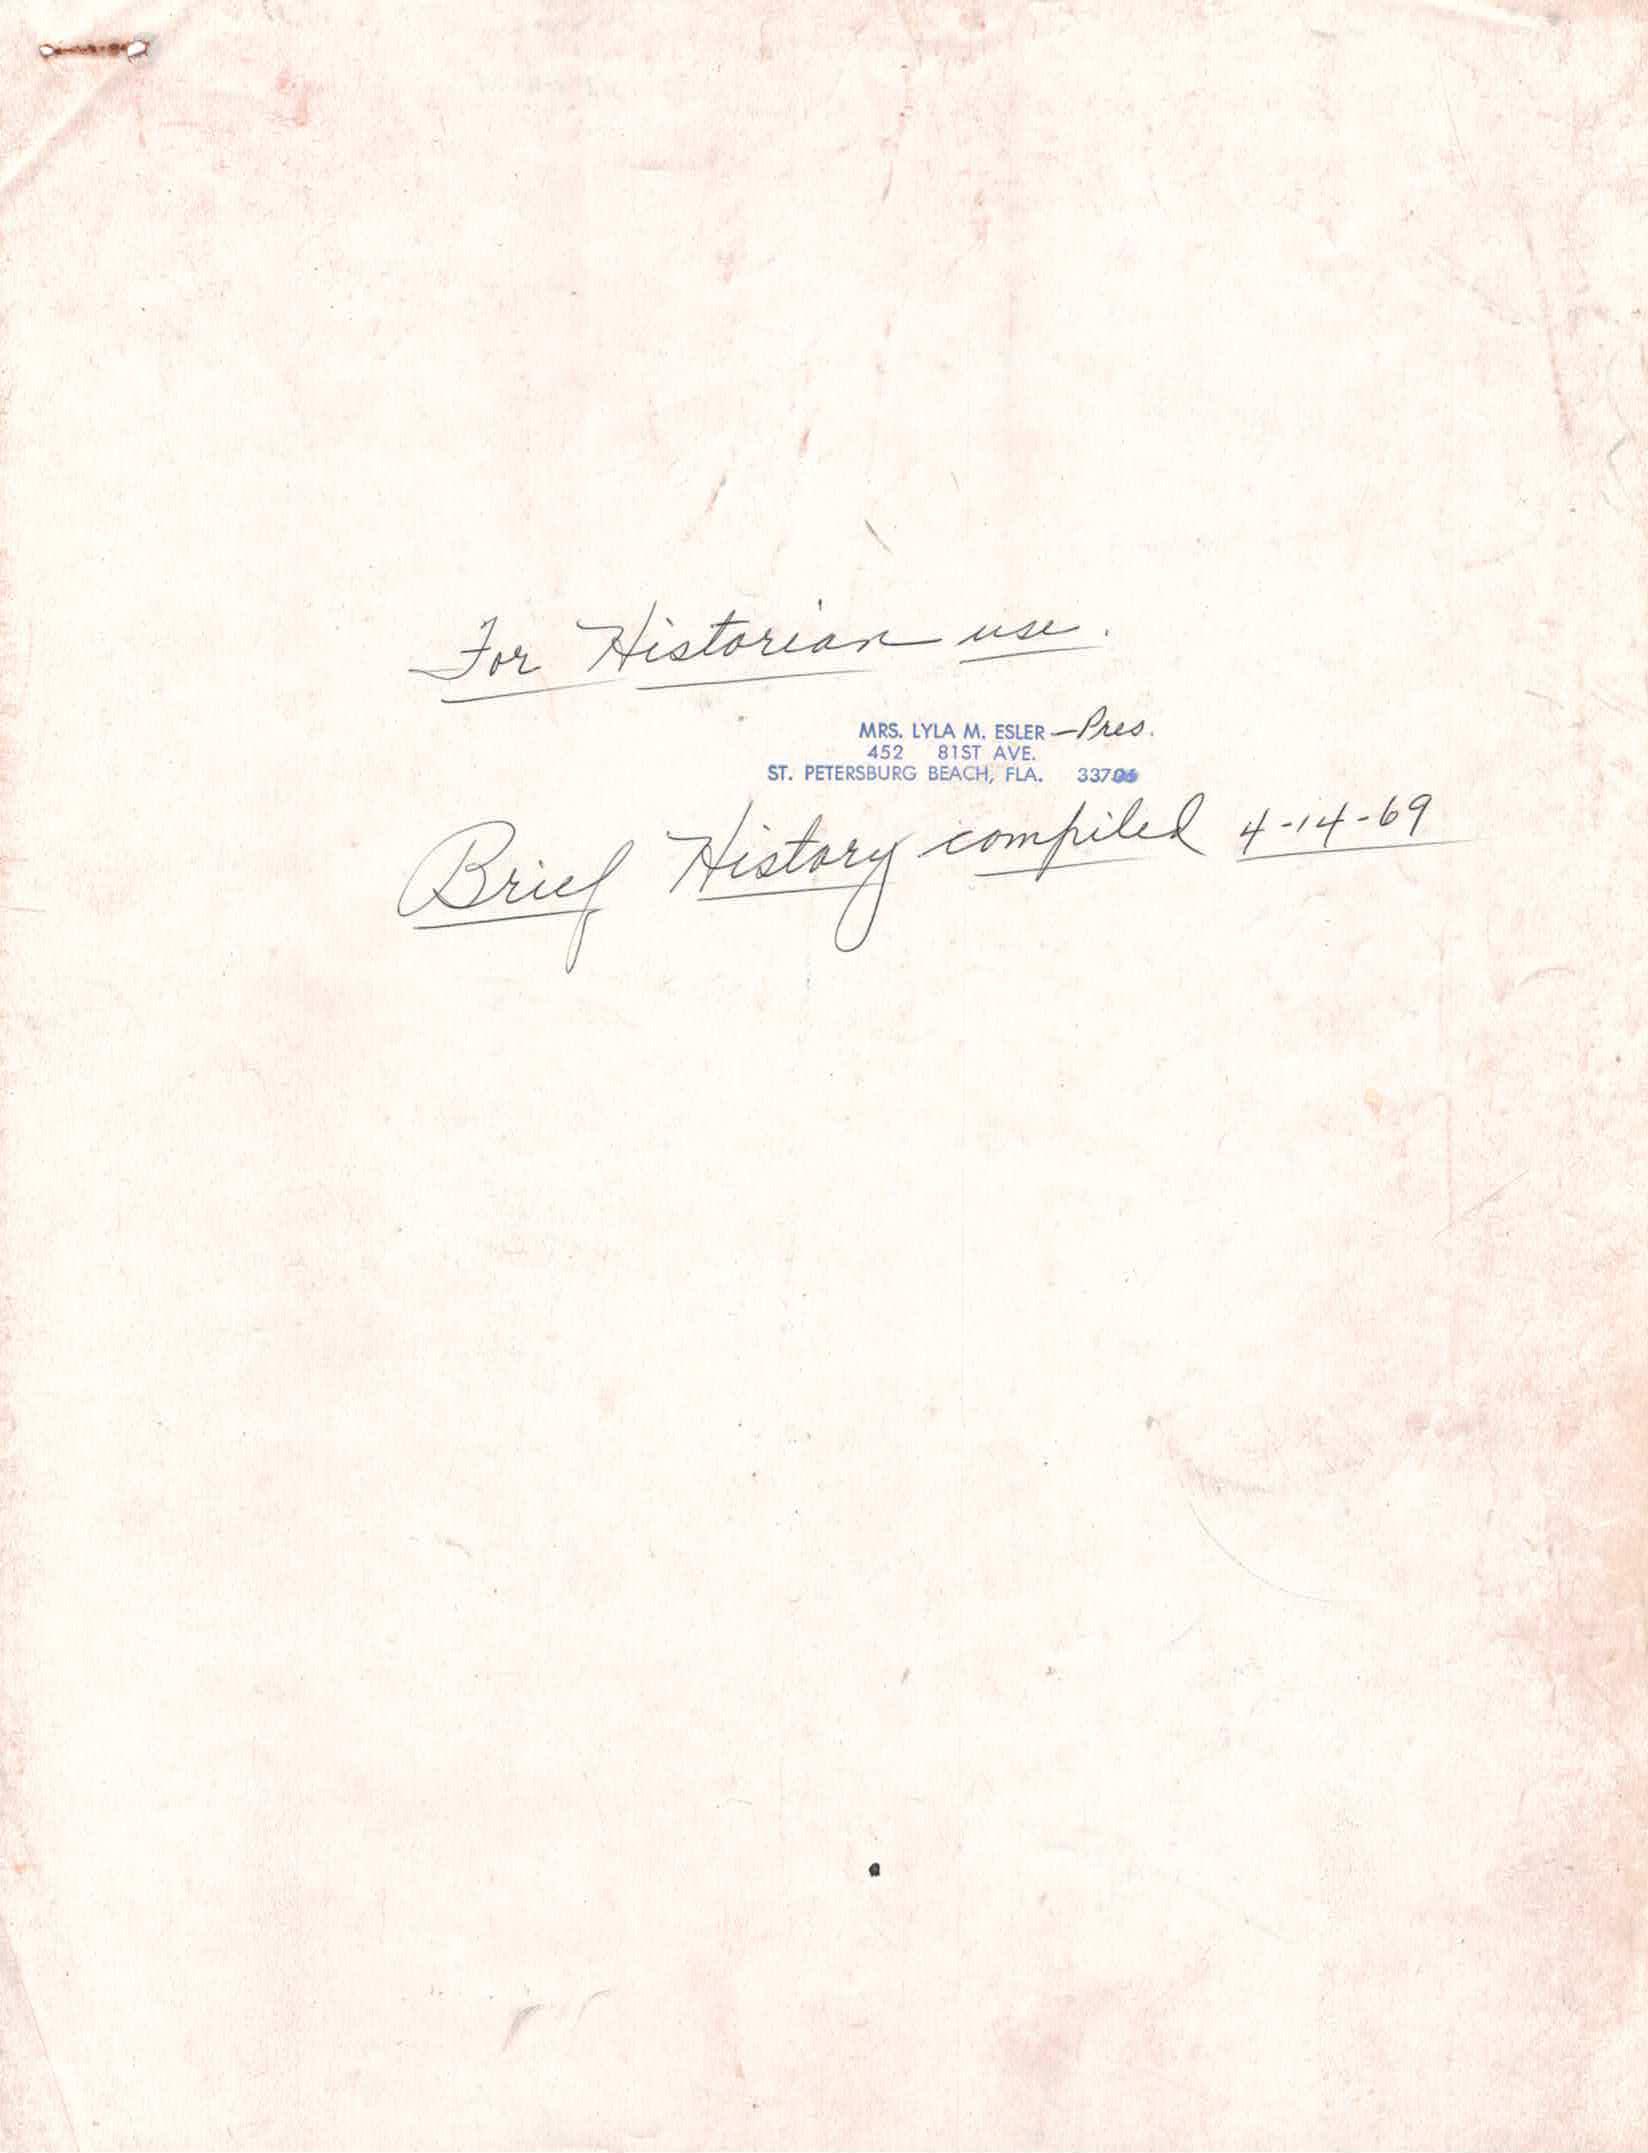 For Historian use.
MRS. LYLA M. ESLER – Pres.
452 81ST AVE.
ST. PETERSBURG BEACH, FLA. 33706
Brief History compiled 4-14-69